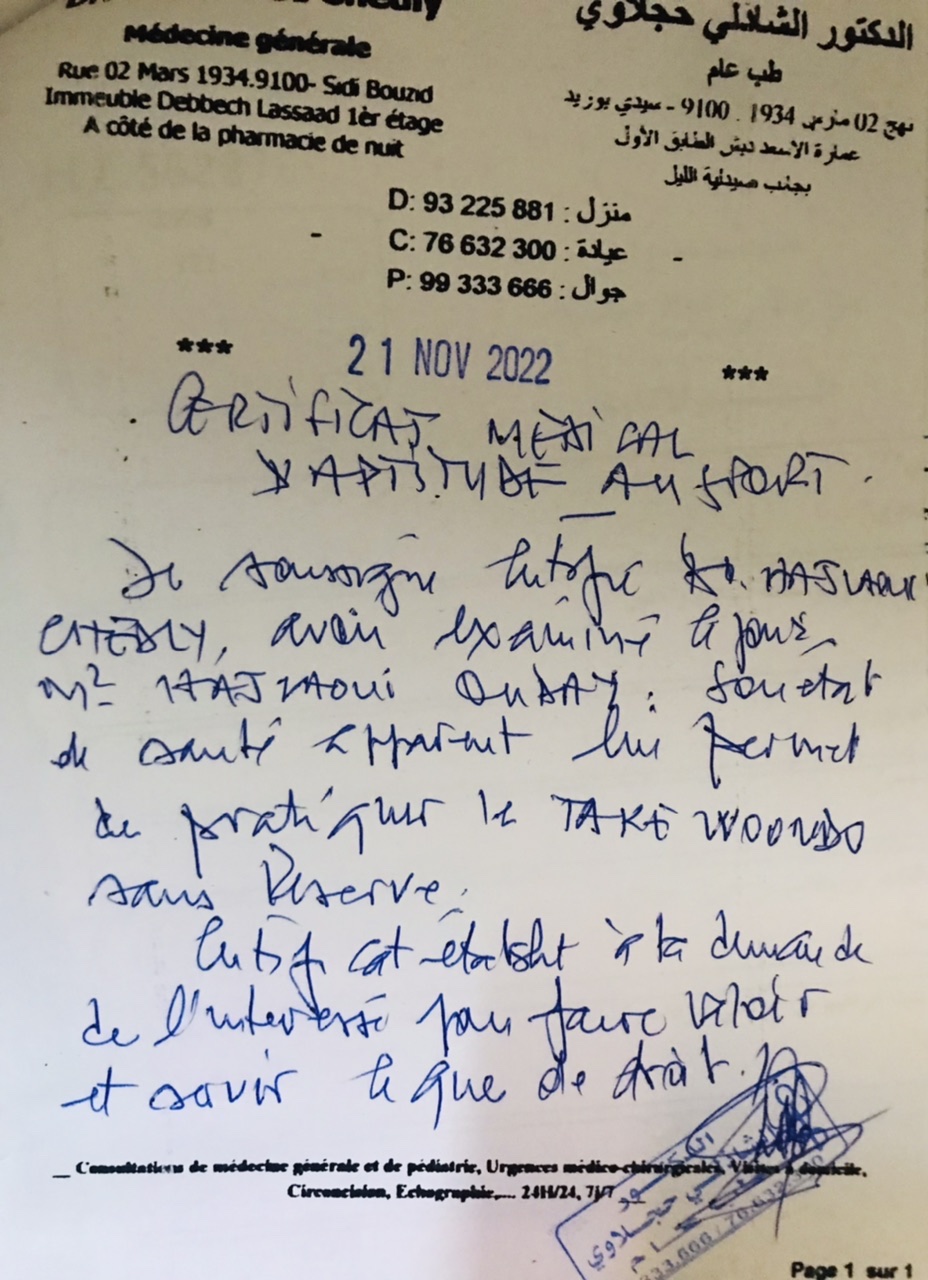 Médecine générale
Rue 02 Mars 1934.9100- Sidi Bouzid
Immeuble Debbech Lassaad 1èr étage
A côté de la pharmacie de nuit
الدكتور الشاذلي حجلاوي
طب عام
نهج 02 مارس 1934 . 9100 - سيدي بوزيد
عمارة الاسعد دبش الطابق الأول
بجانب صيدلية الليل
D: 93 225 881 : منزل
C: 76 632 300 : عيادة
P: 99 333 666 : جوال
*** 21 NOV 2022 ***
CERTIFICAT MEDICAL
D'APTITUDE AU SPORT.
Je soussigné certifie Dr. HAJLAOUI
CHEDLY, avoir examiné ce jour,
Mr HAJLAOUI OUDAY. Son etat
de santé apparent lui permet
de pratiquer le TAKE WOONDO
sans Réserve.
Certificat établi à la demande
de l'interessé pour faire valoir
et servir ce que de droit.
_ Consultations de médecine générale et de pédiatrie, Urgences médico-chirurgicales, Visites à domicile,
Circoncision, Echographie,... 24H/24, 7J/7
حجلاوي
Page 1 sur 1